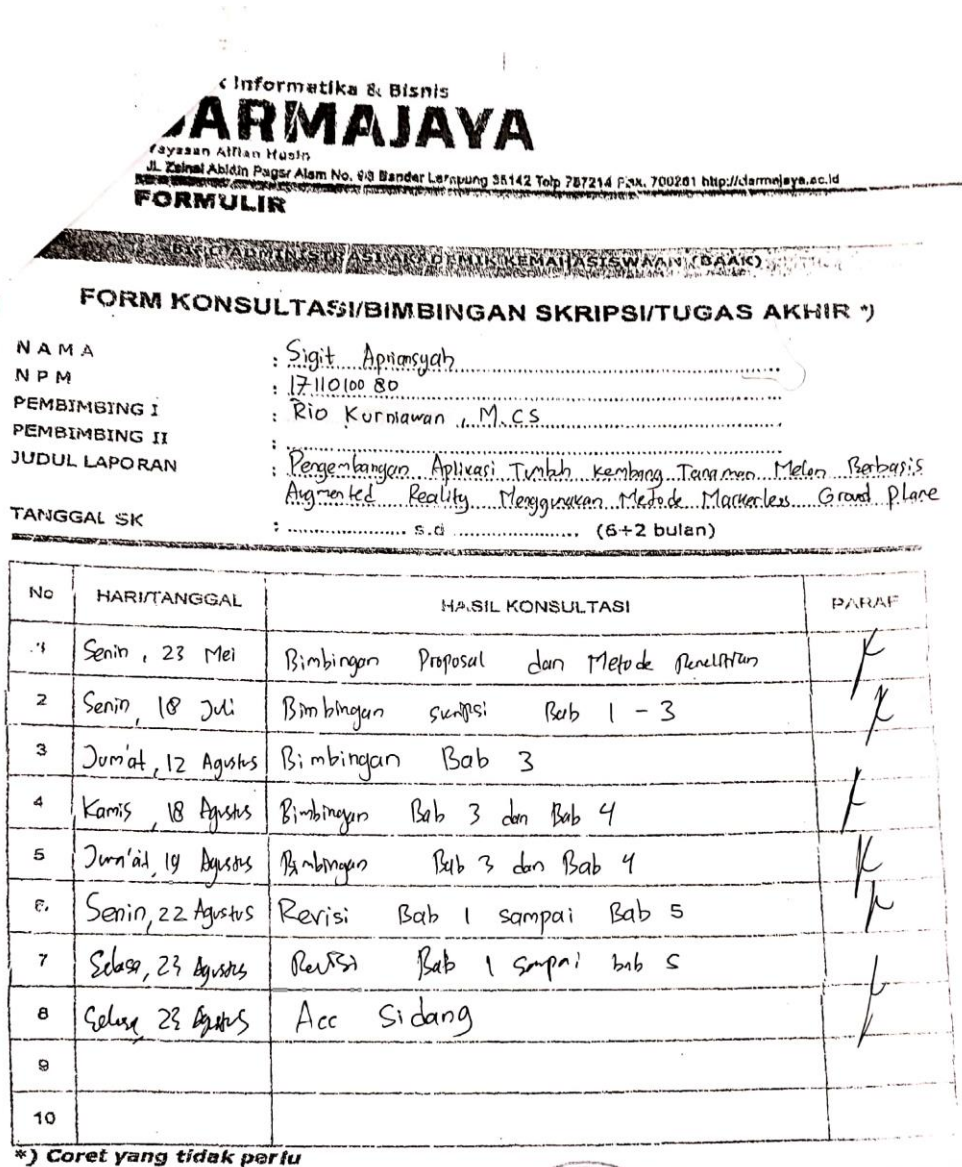 Informatika & Bisnis
DARMAJAYA
Yayasan Alfian Husin
JL. Zainal Abidin Pagar Alam No. 93 Bandar Lampung 35142 Telp 787214 Fax. 700261 http://darmajaya.ac.id
FORMULIR
ADMINISTRASI AKADEMIK KEMAHASISWAAN (BAAK)
FORM KONSULTASI/BIMBINGAN SKRIPSI/TUGAS AKHIR *)
NAMA : Sigit Apriansyah
NPM : 1711010080
PEMBIMBING I : Rio Kurniawan, M.CS
PEMBIMBING II :
JUDUL LAPORAN : Pengembangan Aplikasi Tumbuh Kembang Tanaman Melon Berbasis
Augmented Reality Menggunakan Metode Markerless Ground Plane
TANGGAL SK : .................... s.d ...................... (6+2 bulan)
No HARI/TANGGAL HASIL KONSULTASI PARAF
1 Senin, 23 Mei Bimbingan Proposal dan Metode Penelitian
2 Senin, 18 Juli Bimbingan skripsi Bab 1 - 3
3 Jum'at, 12 Agustus Bimbingan Bab 3
4 Kamis, 18 Agustus Bimbingan Bab 3 dan Bab 4
5 Jum'at, 19 Agustus Bimbingan Bab 3 dan Bab 4
6. Senin, 22 Agustus Revisi Bab 1 sampai Bab 5
7 Selasa, 23 Agustus Revisi Bab 1 sampai bab 5
8 Selasa, 23 Agustus Acc Sidang
9
10
*) Coret yang tidak perlu